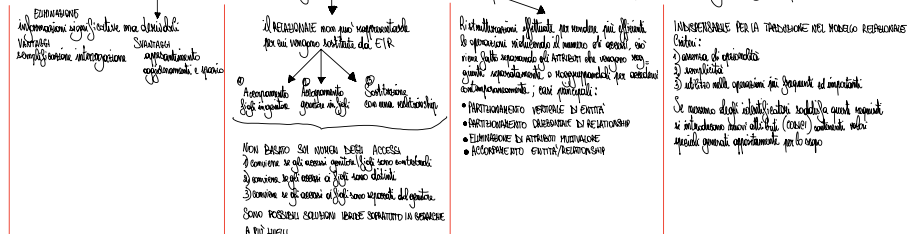 ELIMINAZIONE
informazioni significative ma derivabili
VANTAGGI SVANTAGGI
semplificazione interrogazione appesantimento
aggiornamenti e spazio
il RELAZIONALE non può rappresentarle
per cui vengono sostituite da E/R
Accorpamento
figli in genitore
Accorpamento
genitore in figli
Sostituzione
con una relationship
NON BASATO SUL NUMERO DEGLI ACCESSI
1) conviene se gli accessi genitore/figli sono contestuali
2) conviene se gli accessi ai figli sono distinti
3) conviene se gli accessi ai figli sono separati dal genitore
SONO POSSIBILI SOLUZIONI IBRIDE SOPRATUTTO IN GERARCHIE
A PIÙ LIVELLI
Ristrutturazioni effettuate per rendere più efficienti
le operazioni riducendo il numero di accessi, ciò
viene fatto separando gli ATTRIBUTI che vengono
separatamente o raggruppandoli per accedervi
contemporaneamente; casi principali:
• PARTIZIONAMENTO VERTICALE DI ENTITA'
• PARTIZIONAMENTO ORIZZONTALE DI RELATIONSHIP
• ELIMINAZIONE DI ATTRIBUTI MULTIVALORE
• ACCORPAMENTO ENTITA'/RELATIONSHIP
INDISPENSABILE PER LA TRADUZIONE NEL MODELLO RELAZIONALE
Criteri:
1) assenza di opzionalità
2) semplicità
3) utilizzo nelle operazioni più frequenti ed importanti
Se nessuno degli identificatori soddisfa questi requisiti
si introducono nuovi attributi (CODICI) contenenti valori
speciali generati appositamente per lo scopo